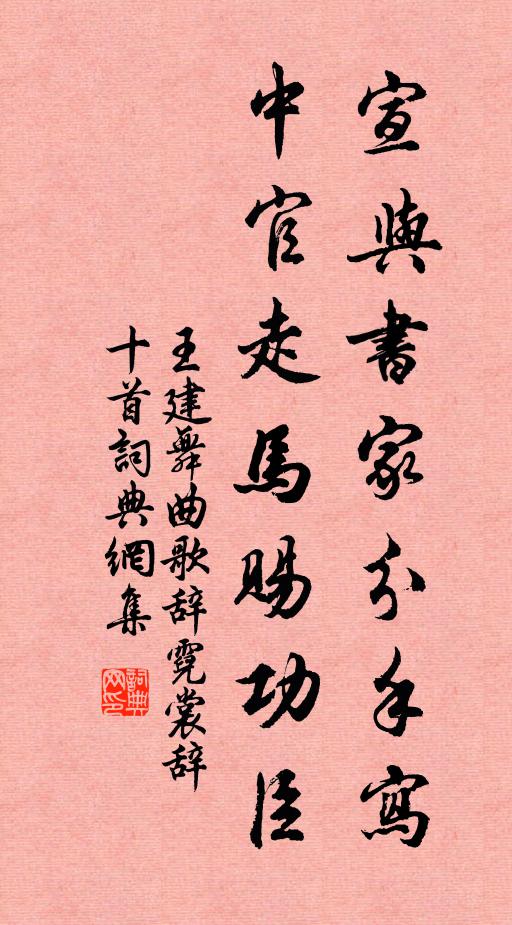 宣與書家分手寫
中官走馬賜功臣
王建舞曲歌辞霓裳辞
十首詞典網集
詞典网印